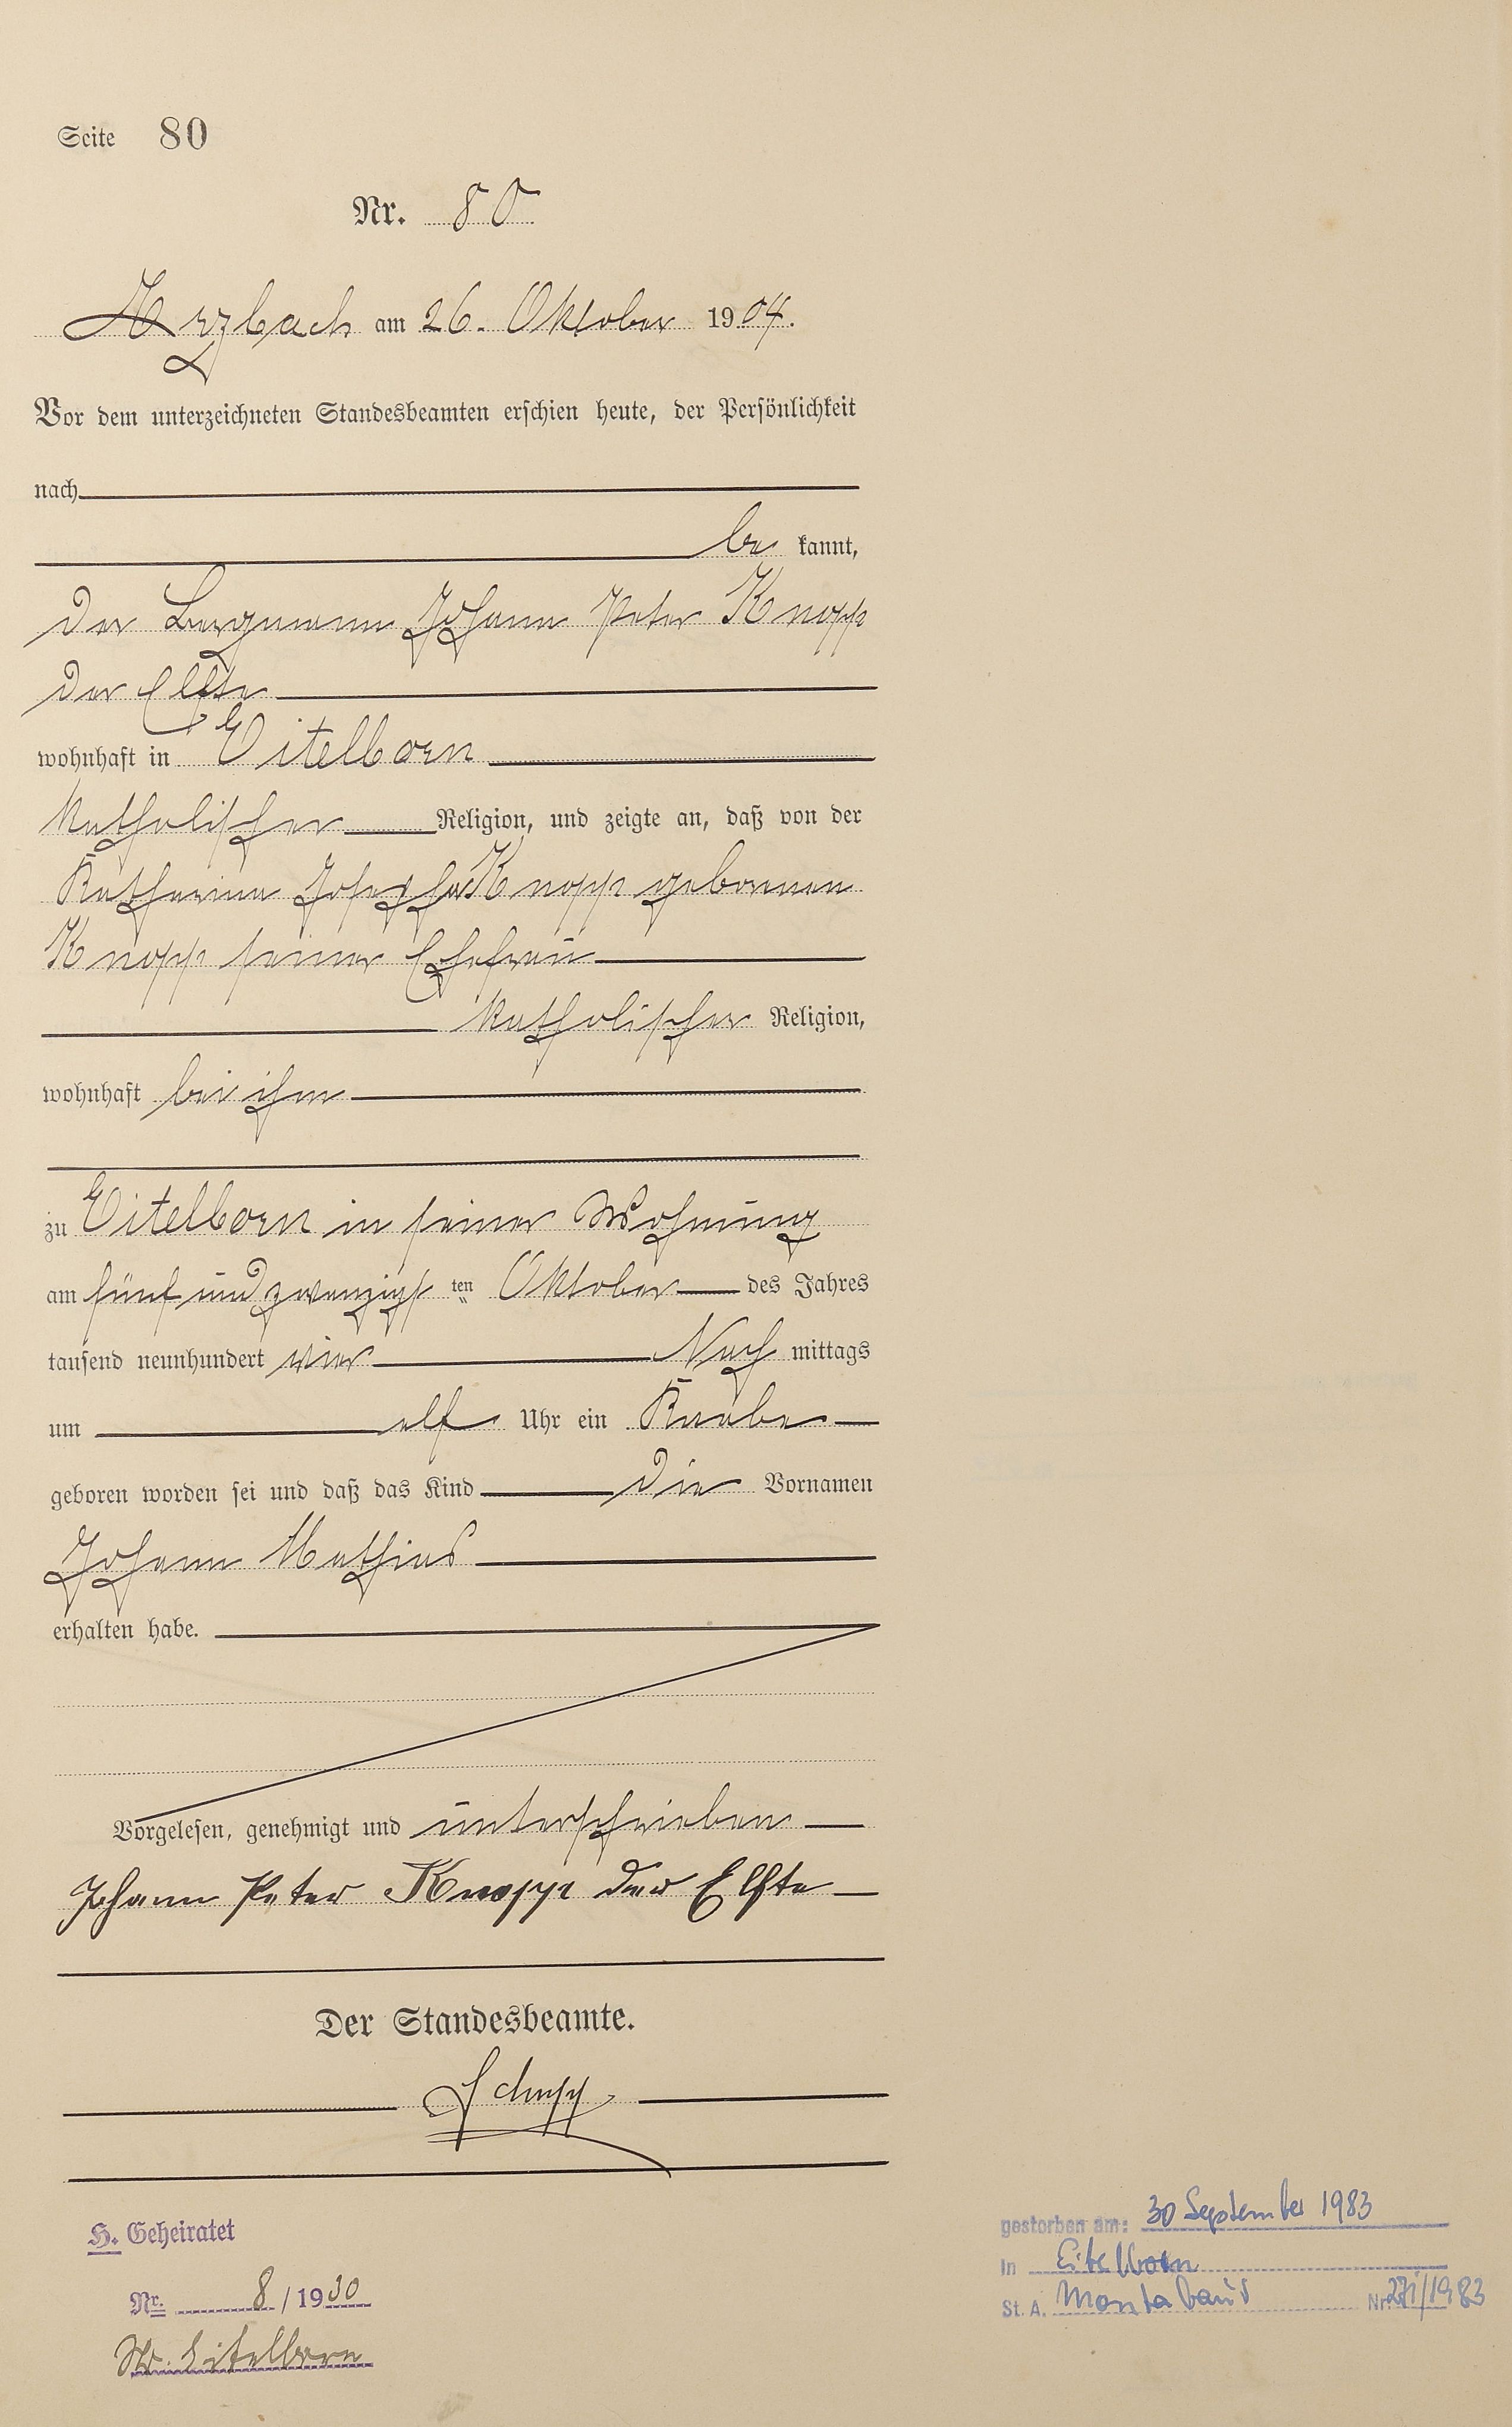 Seite 80
Nr. 80
Arzbach am 26. Oktober 1904.
Vor dem unterzeichneten Standesbeamten erschien heute, der Persönlichkeit
nach
be kannt,
der Bergmann Johann Peter Knopp
der Elfte
wohnhaft in Eitelborn
katholischer Religion, und zeigte an, daß von der
Katharina Josepha Knopp geborenen
Knopp seiner Ehefrau
katholischer Religion,
wohnhaft bei ihm
zu Eitelborn in seiner Wohnung
am fünf und zwanzigs ten Oktober des Jahres
tausend neunhundert vier Nach mittags
um elf Uhr ein Knabe
geboren worden sei und daß das Kind die Vornamen
Johann Mathias
erhalten habe.
Vorgelesen, genehmigt und unterschrieben
Johann Peter Knopp der Elfte
Der Standesbeamte.
Schupp
H. Geheiratet
Nr. 8/1930
Eitelborn
gestorben am: 30 September 1983
in Eitelborn
St. A. Montabaur Nr. 271/1983